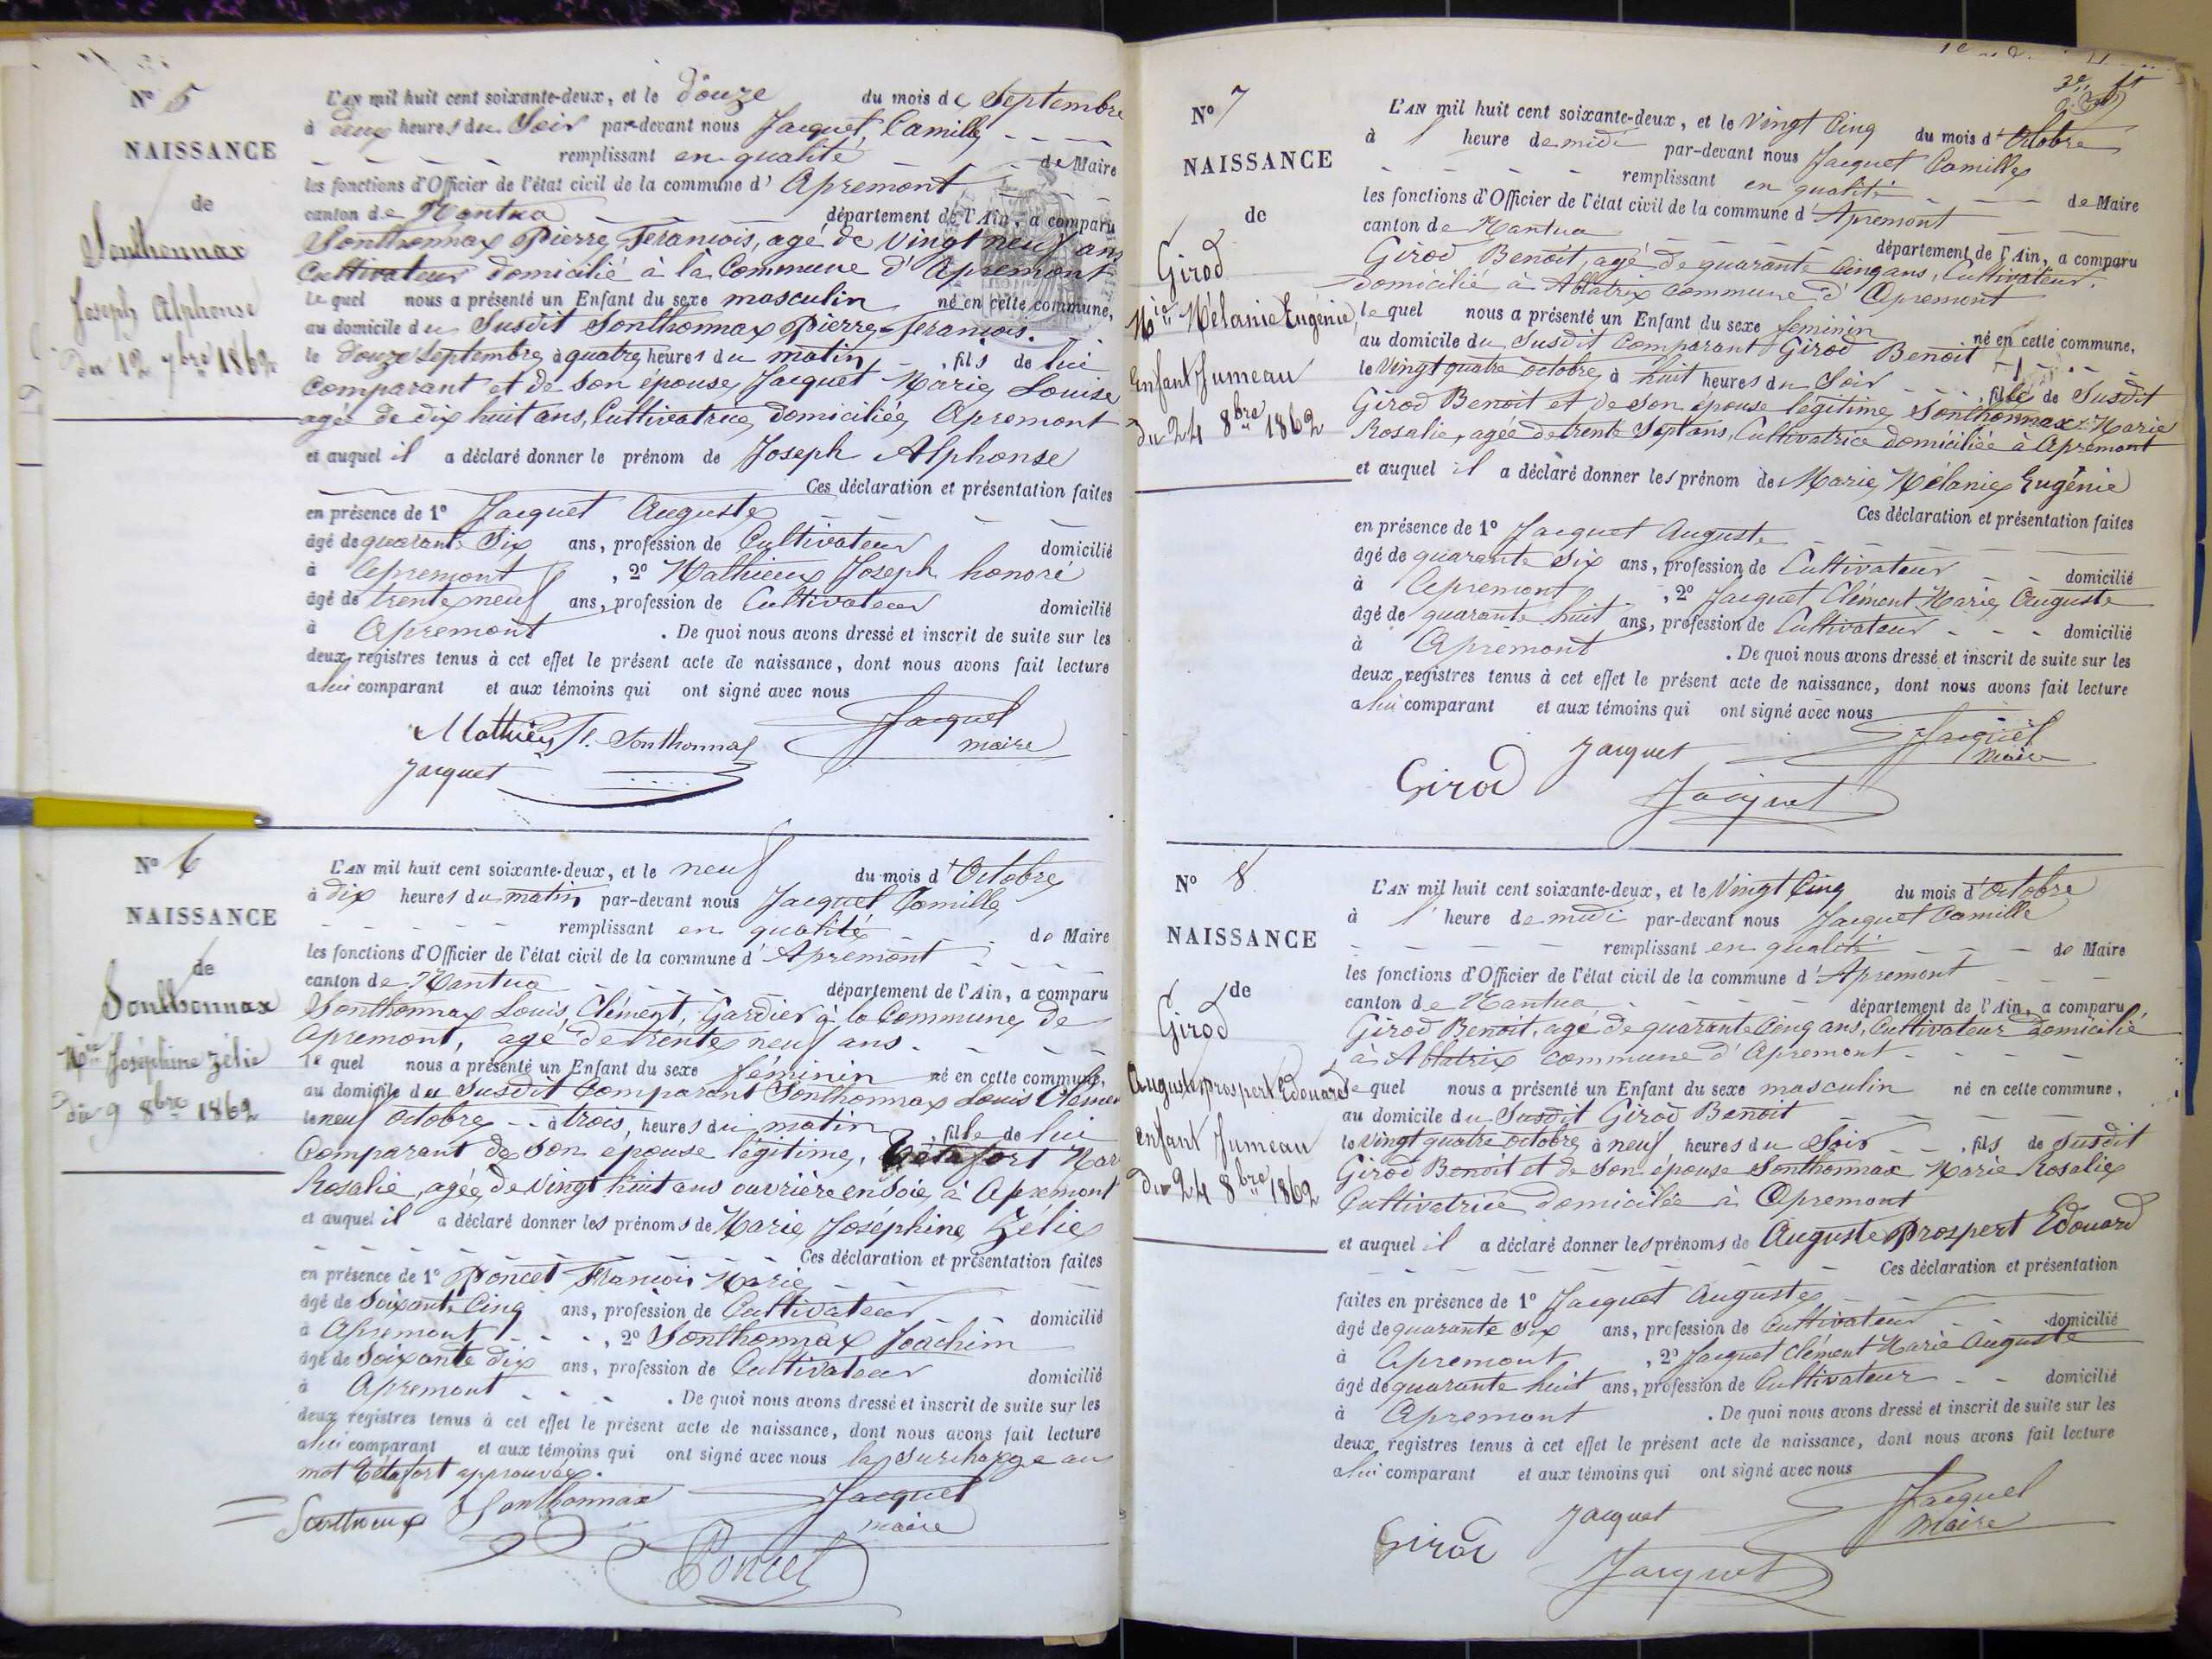 N° 5
NAISSANCE
de
Sonthonnax
Joseph Alphonse
du 12 7bre 1862
L'AN mil huit cent soixante-deux, et le douze du mois de Septembre
à deux heures du Soir par-devant nous Jacquet Camille
remplissant en qualité de Maire
les fonctions d'Officier de l'état civil de la commune d' Apremont
canton de Nantua département de l'Ain, a comparu
Sonthonnax Pierre François, agé de vingt neuf ans
Cultivateur domicilié à la Commune d'Apremont
le quel nous a présenté un Enfant du sexe masculin né en cette commune,
au domicile du Susdit Sonthonnax Pierre-François.
le douze Septembre à quatre heures du matin, fils de lui
Comparant et de son épouse, Jacquet Marie Louise
agée de dix huit ans, Cultivatrice, domiciliée, Apremont
et auquel il a déclaré donner le prénom de Joseph Alphonse
Ces déclaration et présentation faites
en présence de 1° Jacquet Auguste
âgé de quarante Six ans, profession de Cultivateur domicilié
à Apremont, 2° Mathieux Joseph honoré
âgé de trente neuf ans, profession de Cultivateur domicilié
à Apremont. De quoi nous avons dressé et inscrit de suite sur les
deux registres tenus à cet effet le présent acte de naissance, dont nous avons fait lecture
a lui comparant et aux témoins qui ont signé avec nous
Mathieu F. Sonthonnax Jacquet
maire
Jacquet
N° 6
NAISSANCE
de
Sonthonnax
Mie Joséphine Zélie
du 9 8bre 1862
L'AN mil huit cent soixante-deux, et le neuf du mois d'Octobre
à dix heures du matin par-devant nous Jacquet Camille
remplissant en qualité de Maire
les fonctions d'Officier de l'état civil de la commune d' Apremont
canton de Nantua département de l'Ain, a comparu
Sonthonnax Louis, Clément, Gardier à la Commune de
Apremont, agé de trente neuf ans.
le quel nous a présenté un Enfant du sexe féminin né en cette commune,
au domicile du Susdit Comparant Sonthonnax Louis Clément
le neuf Octobre à trois, heures du matin, fille de lui
Comparant de Son épouse légitime, Tétafort Mar
Rosalie, agée de vingt huit ans ouvrière en Soie, à Apremont
et auquel il a déclaré donner les prénoms de Marie Joséphine Zélie
Ces déclaration et présentation faites
en présence de 1° Poncet François Marie
âgé de Soixante Cinq ans, profession de Cultivateur domicilié
à Apremont, 2° Sonthonnax Joachim
âgé de Soixante dix ans, profession de Cultivateur domicilié
à Apremont. De quoi nous avons dressé et inscrit de suite sur les
deux registres tenus à cet effet le présent acte de naissance, dont nous avons fait lecture
a lui comparant et aux témoins qui ont signé avec nous la surcharge au
mot Tétafort approuvée.
Sonthonnax Jacquet
maire
Poncet
N° 7
NAISSANCE
de
Girod
Mie Mélanie Eugénie
Enfant Jumeau
du 24 8bre 1862
L'AN mil huit cent soixante-deux, et le Vingt Cinq du mois d'Octobre
à 1 heure de midi par-devant nous Jacquet Camille
remplissant en qualité de Maire
les fonctions d'Officier de l'état civil de la commune d' Apremont
canton de Nantua département de l'Ain, a comparu
Girod Benoit, agé de quarante Cinq ans, Cultivateur.
domicilié à Ablatrix commune d'Apremont
le quel nous a présenté un Enfant du sexe feminin né en cette commune,
au domicile du Susdit Comparant Girod Benoit
le Vingt quatre octobre à huit heures du Soir, fille de Susdit
Girod Benoit et de Son épouse légitime, Sonthonnax Marie
Rosalie, agée de trente Sept ans, Cultivatrice domiciliée à Apremont
et auquel il a déclaré donner les prénom de Marie Mélanie Eugénie
Ces déclaration et présentation faites
en présence de 1° Jacquet Auguste
âgé de quarante Six ans, profession de Cultivateur domicilié
à Apremont, 2° Jacquet Clément Marie Auguste
âgé de quarante huit ans, profession de Cultivateur domicilié
à Apremont. De quoi nous avons dressé et inscrit de suite sur les
deux registres tenus à cet effet le présent acte de naissance, dont nous avons fait lecture
a lui comparant et aux témoins qui ont signé avec nous
Jacquet Jacquet
maire
Girod Jacquet
N° 8
NAISSANCE
de
Girod
Auguste prospert Edouard
enfant Jumeau
du 24 8bre 1862
L'AN mil huit cent soixante-deux, et le Vingt Cinq du mois d'Octobre
à 1 heure de midi par-devant nous Jacquet Camille
remplissant en qualité de Maire
les fonctions d'Officier de l'état civil de la commune d' Apremont
canton de Nantua département de l'Ain, a comparu
Girod Benoit, agé de quarante Cinq ans, Cultivateur domicilié
à Ablatrix commune d'Apremont
le quel nous a présenté un Enfant du sexe masculin né en cette commune,
au domicile du Susdit Girod Benoit
le Vingt quatre octobre à neuf heures du Soir, fils de Susdit
Girod Benoit et de Son épouse Sonthonnax Marie Rosalie
Cultivatrice domiciliée à Apremont
et auquel il a déclaré donner les prénoms de Auguste Prospert Edouard
Ces déclaration et présentation
faites en présence de 1° Jacquet Auguste
âgé de quarante Six ans, profession de Cultivateur domicilié
à Apremont, 2° Jacquet Clément Marie Auguste
âgé de quarante huit ans, profession de Cultivateur domicilié
à Apremont. De quoi nous avons dressé et inscrit de suite sur les
deux registres tenus à cet effet le présent acte de naissance, dont nous avons fait lecture
a lui comparant et aux témoins qui ont signé avec nous
Jacquet Jacquet
Maire
Girod Jacquet